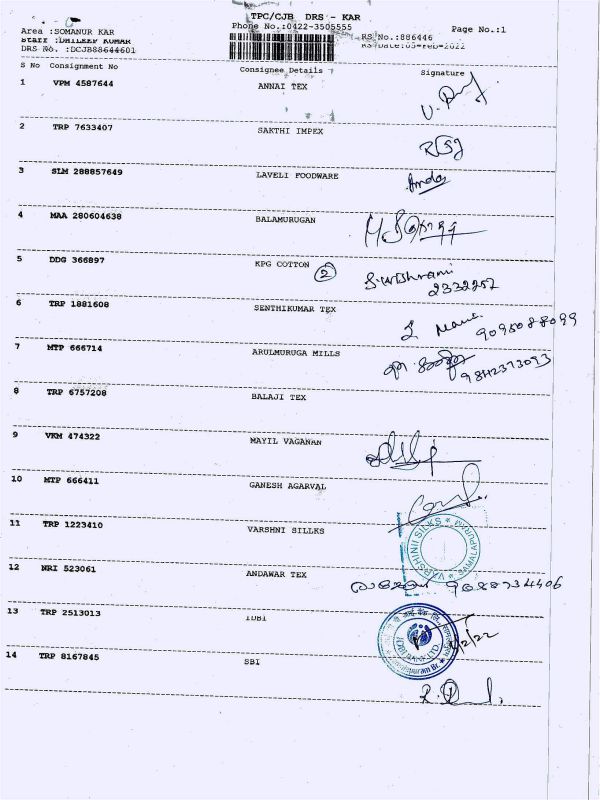 TPC/CJB DRS - KAR
Area :SOMANUR KAR Phone No.:0422-3505555 Page No.:1
Staff :DHILEEP KUMAR RS No.:886446
DRS No. :DCJB88644601 RS Date:05-Feb-2022
S No Consignment No Consignee Details Signature
1 VPM 4587644 ANNAI TEX
2 TRP 7633407 SAKTHI IMPEX
3 SLM 288857649 LAVELI FOODWARE
4 MAA 280604638 BALAMURUGAN
5 DDG 366897 KPG COTTON 2
2332257
6 TRP 1881608 SENTHIKUMAR TEX
9095088099
7 MTP 666714 ARULMURUGA MILLS
9842373093
8 TRP 6757208 BALAJI TEX
9 VKM 474322 MAYIL VAGANAN
10 MTP 666411 GANESH AGARVAL
11 TRP 1223410 VARSHNI SILLKS
VARSHINII SILKS * SAMALAPURAM *
12 NRI 523061 ANDAWAR TEX
13 TRP 2513013 IDBI
IDBI BANK LTD.
14 TRP 8167845 SBI